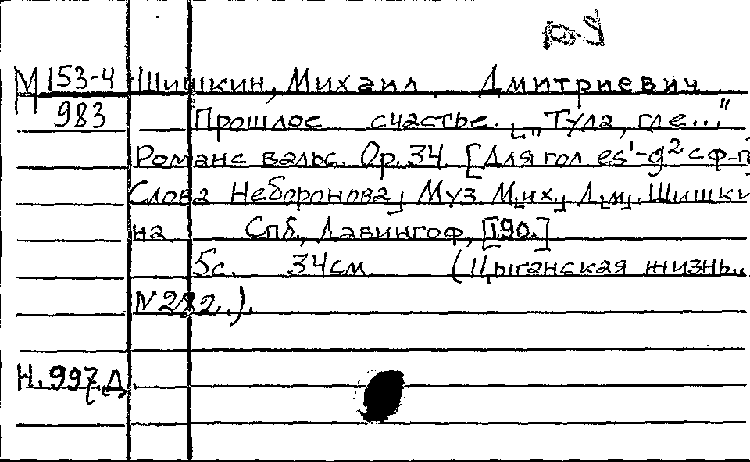 М 153-4 Шишкин, Михаил Дмитриевич
983 Прошлое счастье. [„Туда, где..."]
Романс вальс. Op. 34 [Для гол. es¹-g² с ф-п]
Слова Неборонова; Муз. М[их.] Д[м]. Шишки
на Спб., Давингоф, [190.]
5с. 34см (Цыганская жизнь..
N 282..).
Н. 997 Д.